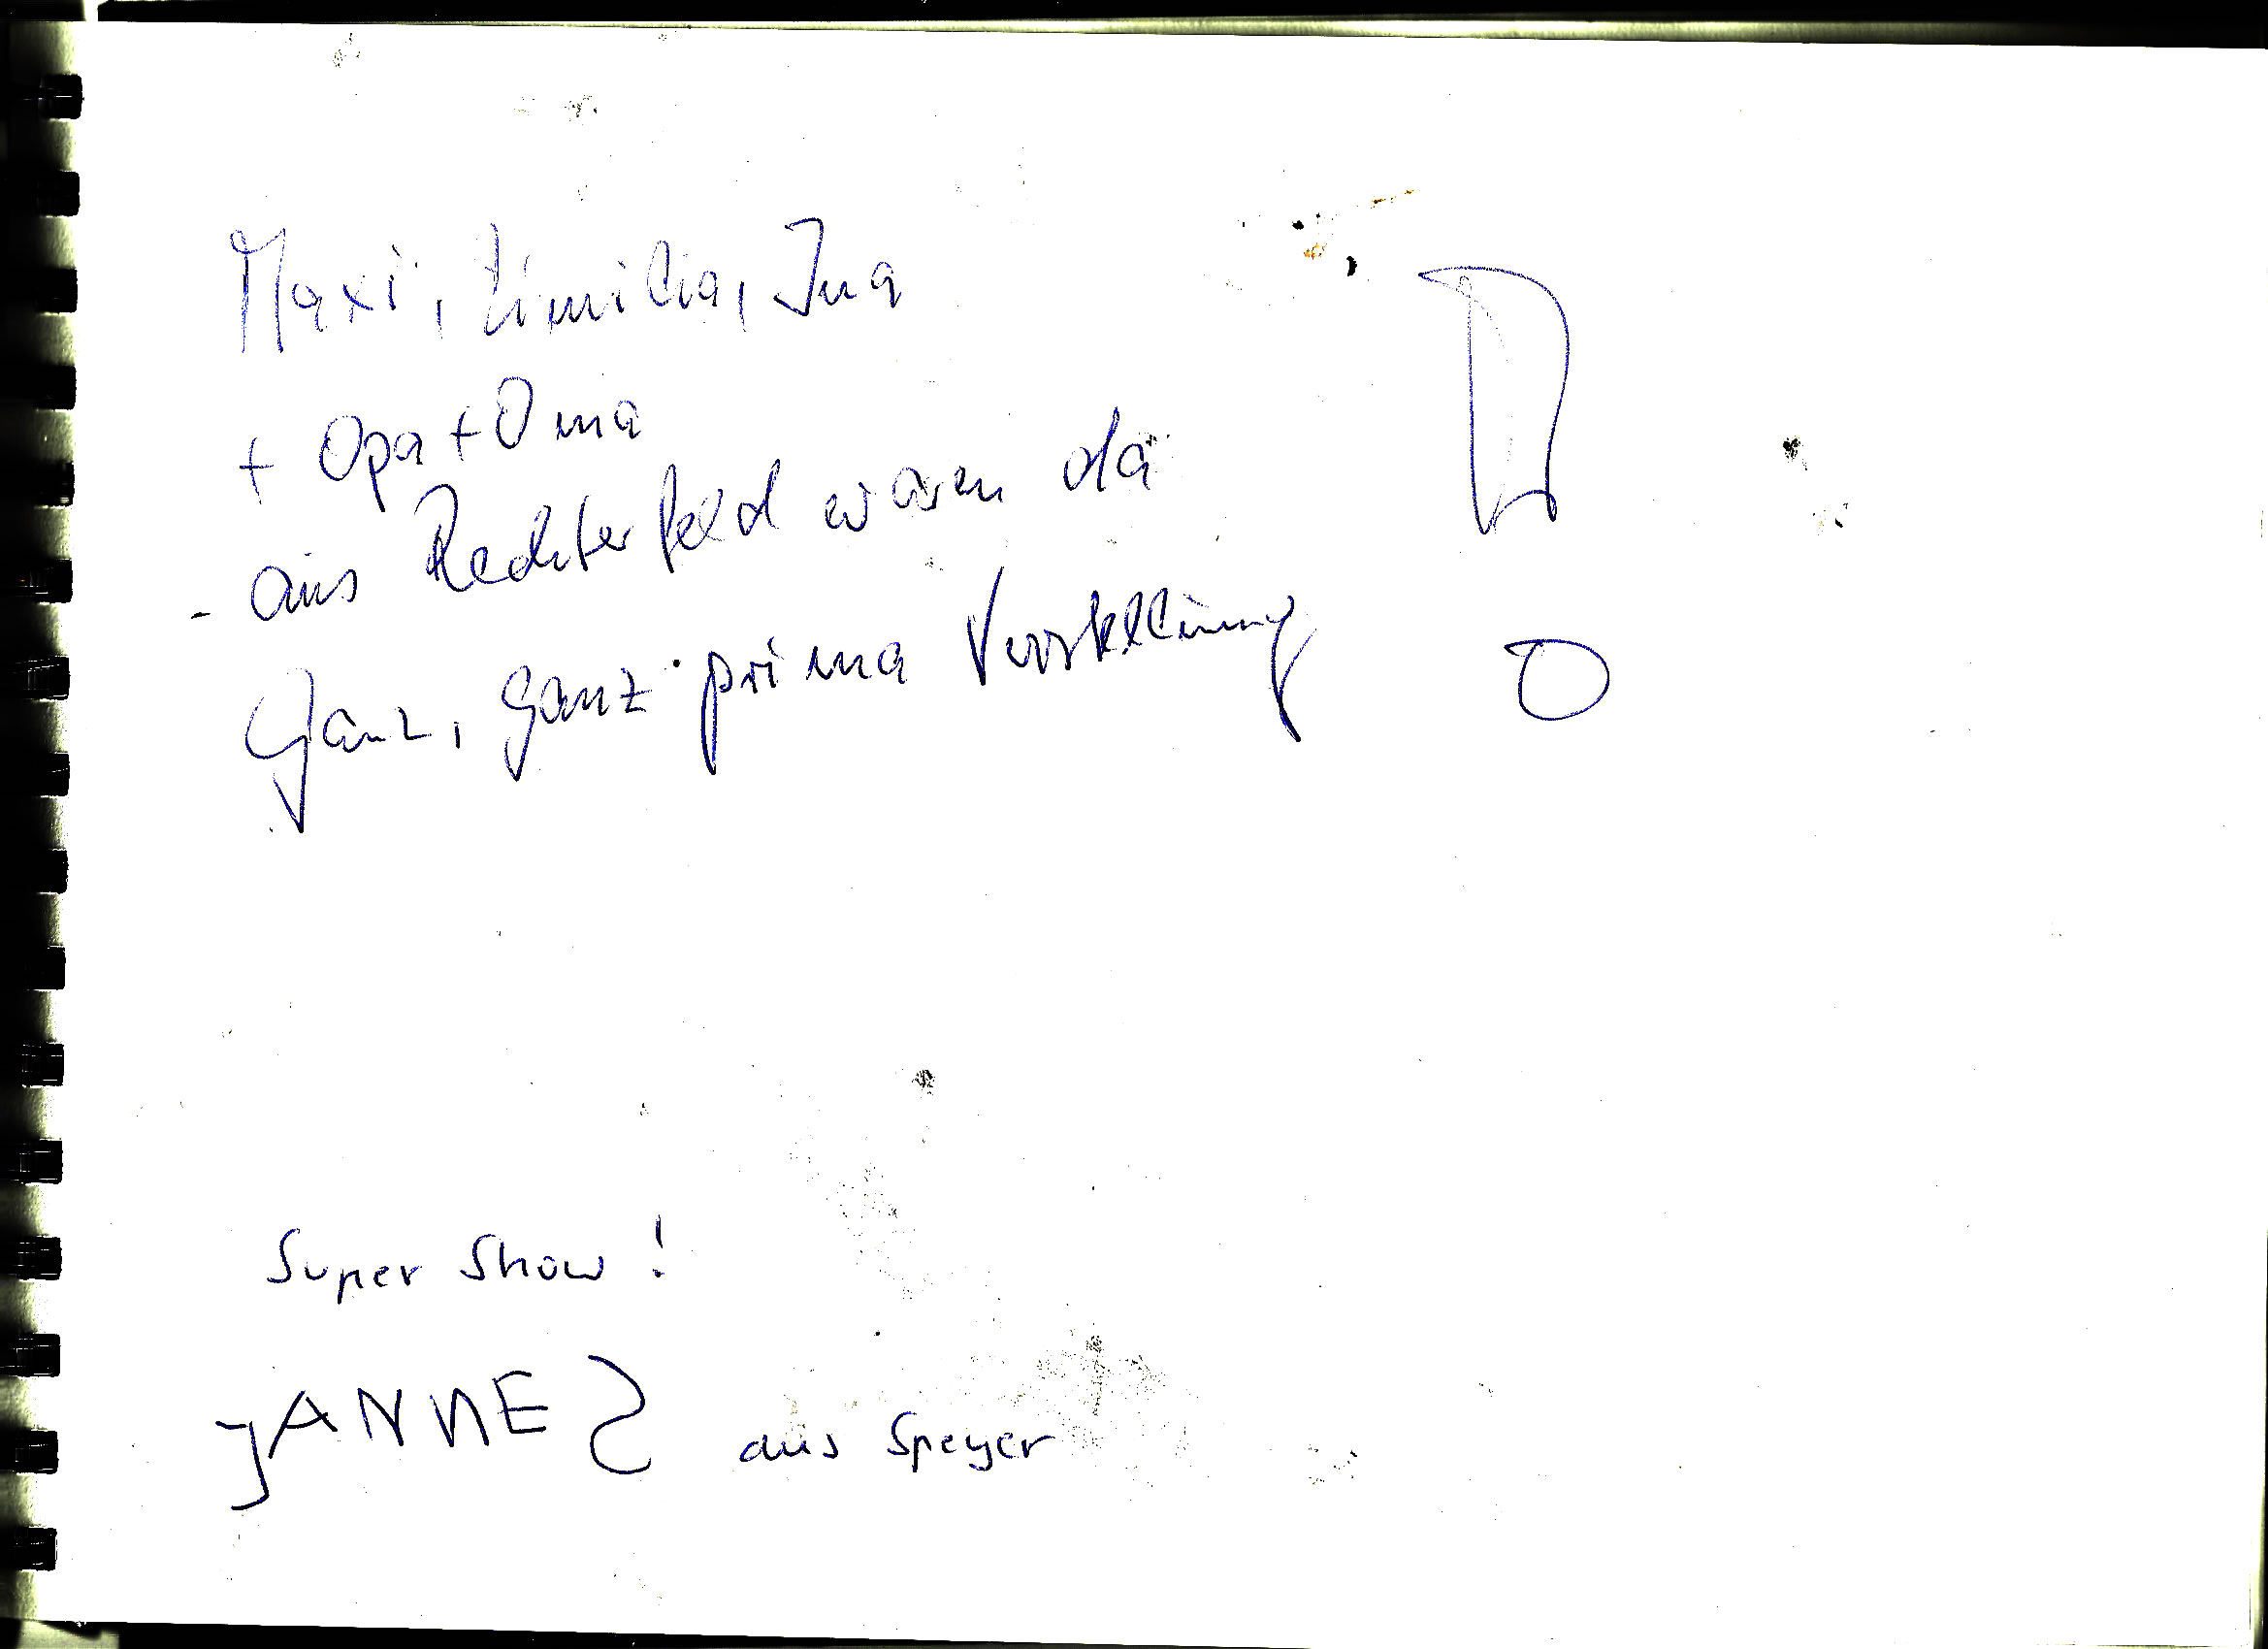 Maxi, Ina
+ Opa + Oma
aus Rechterfeld waren da
Ganz, ganz prima Vorstellung !
Super Show !
JANNES aus Speyer